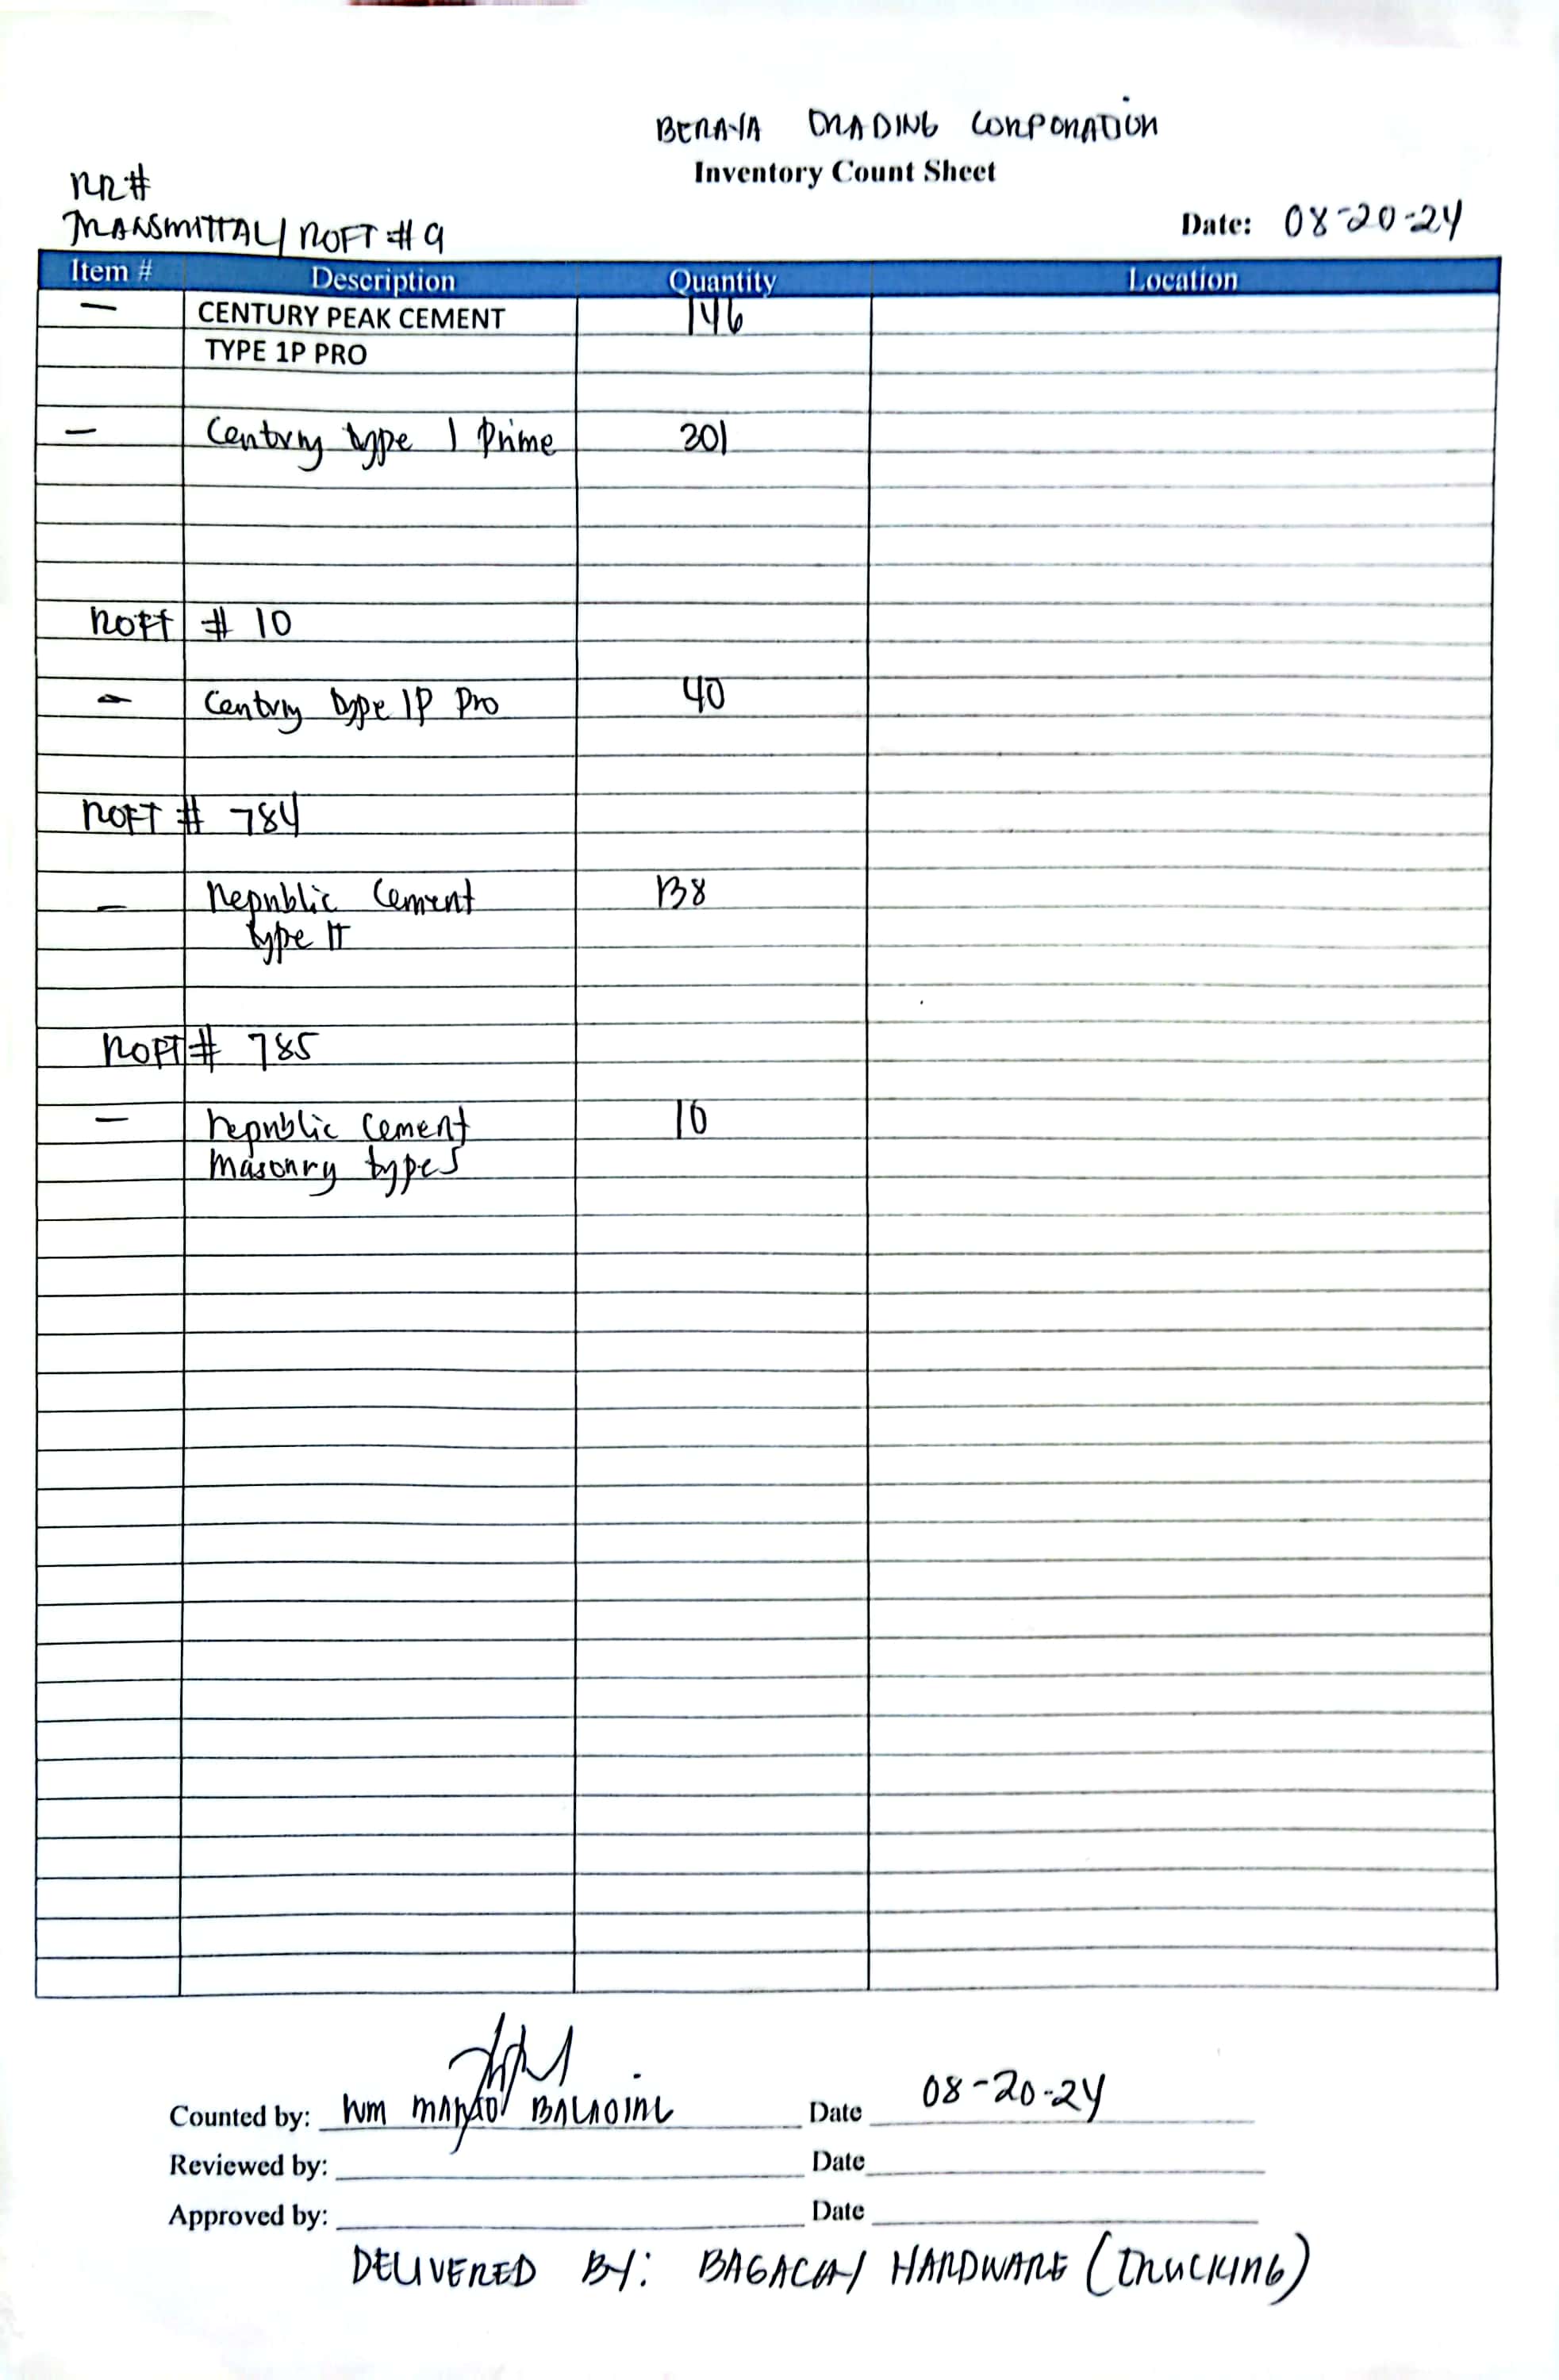 BERAYA TRADING CORPORATION
Inventory Count Sheet
RR#
TRANSMITTAL/ROFT #9
Date: 08-20-24
Item # Description Quantity Location
— CENTURY PEAK CEMENT 146
TYPE 1P PRO
— Century type 1 Prime 301
ROFT # 10
— Century type 1P Pro 40
ROFT # 784
— Republic Cement 138
type II
ROFT # 785
— Republic Cement 10
Masonry type S
Counted by: Date 08-20-24
Reviewed by: Date
Approved by: Date
DELIVERED BY: BAGACAY HARDWARE (TRUCKING)